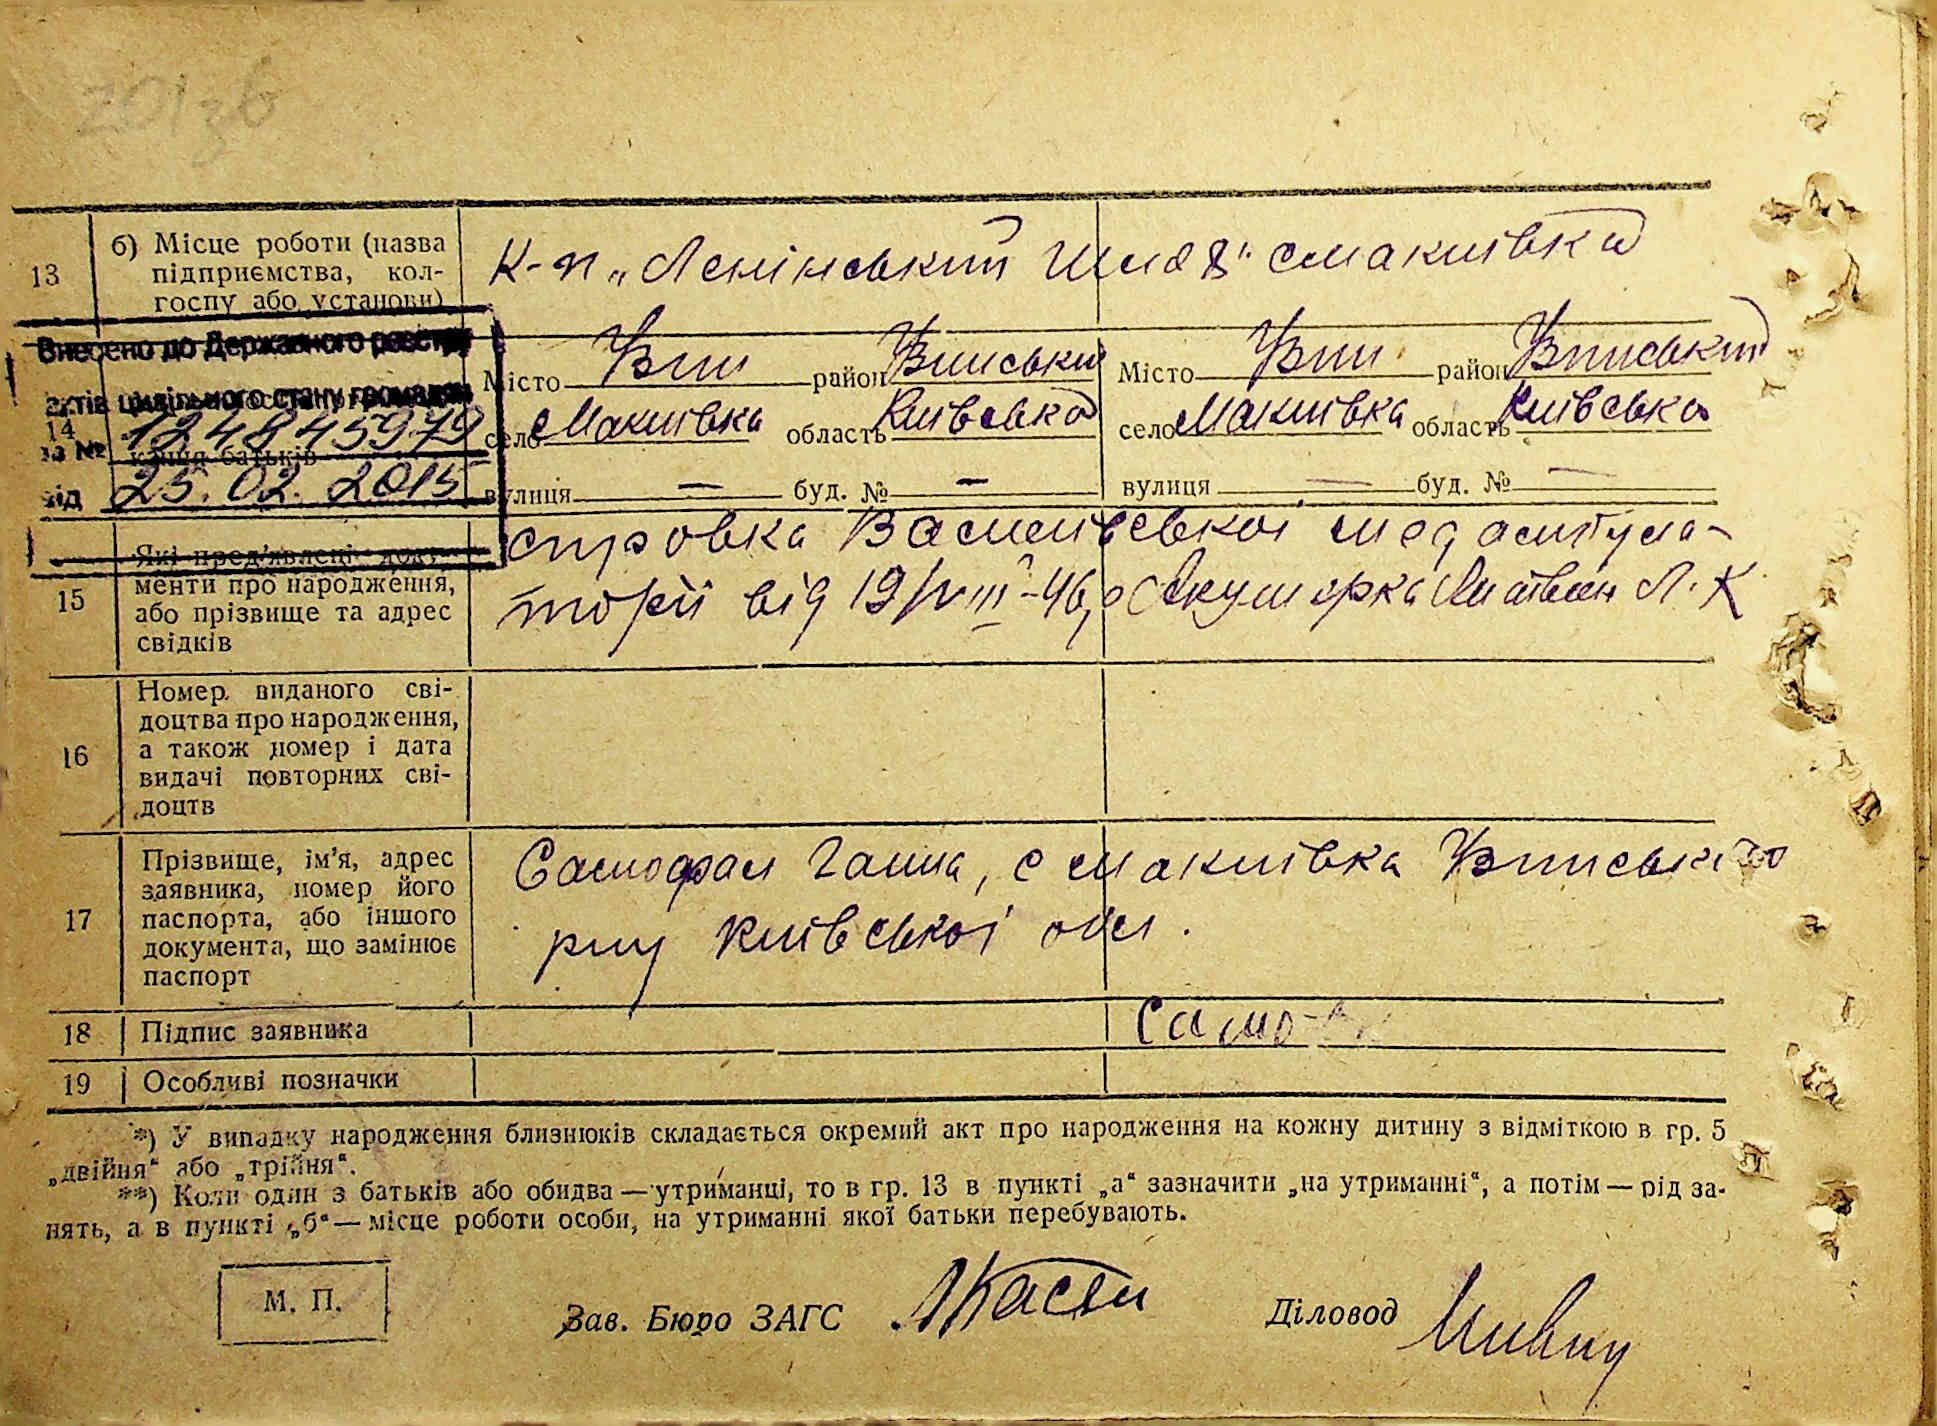 201зв
13
б) Місце роботи (назва
підприємства, кол-
госпу або установи)
К-п „Ленінський Шлях" с Макиївка
Внесено до Державного реєстру
актів цивільного стану громадян
за № 124845979
від 25.02.2015
14
Місто район
село Макиївка область Київська
вулиця — буд. № —
Місто район
село Макиївка область Київська
вулиця — буд. № —
15
Які пред'явлені доку-
менти про народження,
або прізвище та адрес
свідків
справка
від 19/VIII-46 р Акушерка Литвин Л. К
16
Номер виданого сві-
доцтва про народження,
а також номер і дата
видачі повторних сві-
доцтв
17
Прізвище, ім'я, адрес
заявника, номер його
паспорта, або іншого
документа, що замінює
паспорт
Самофал Ганна, с Макиївка
р-ну Київської обл.
18
Підпис заявника
Само
19
Особливі позначки
*) У випадку народження близнюків складається окремий акт про народження на кожну дитину з відміткою в гр. 5
„двійня“ або „трійня“.
**) Коли один з батьків або обидва — утриманці, то в гр. 13 в пункті „а“ зазначити „на утриманні“, а потім — рід за-
нять, а в пункті „б“ — місце роботи особи, на утриманні якої батьки перебувають.
М. П.
Зав. Бюро ЗАГС
Діловод